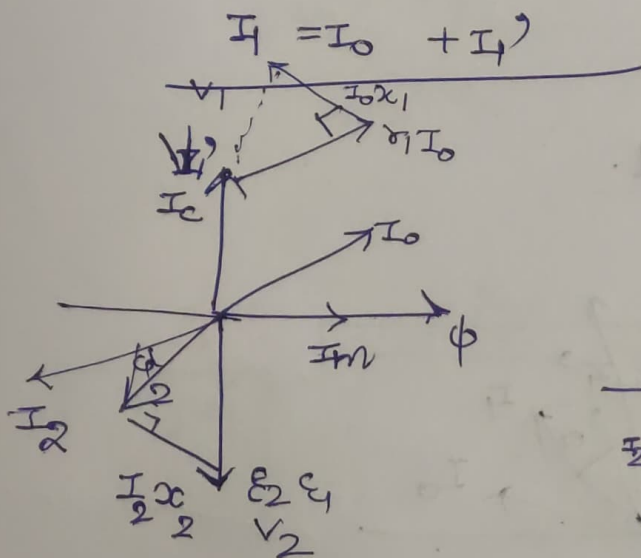 I₁ = I₀ + I₁'
V₁
I₀x₁
r₁I₀
I₁'
I_c
I₀
I_m
φ
φ₂
I₂
I₂x₂
ε₂ ε₁
V₂
I₂